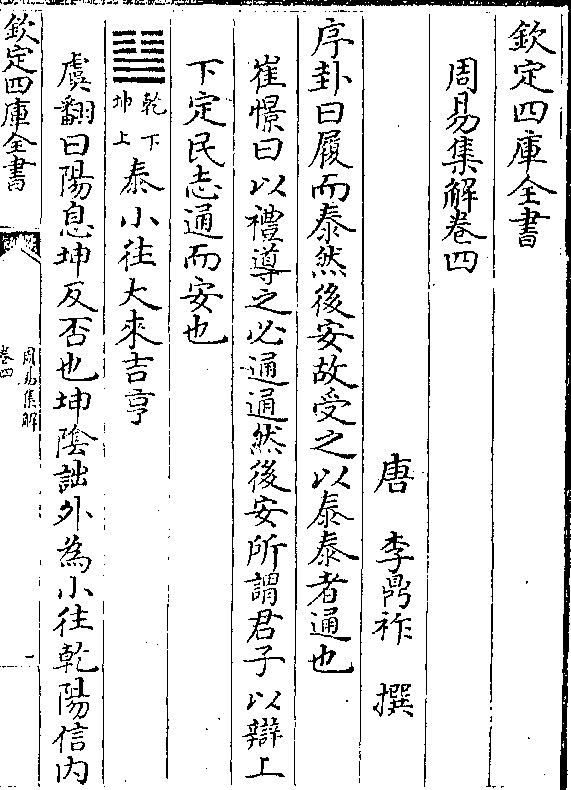 欽定四庫全書
周易集解卷四
唐 李鼎祚 撰
序卦曰履而泰然後安故受之以泰泰者通也
崔憬曰以禮導之必通通然後安所謂君子以辯上
下定民志通而安也
䷊乾下坤上泰小往大來吉亨
虞翻曰陽息坤反否也坤陰詘外為小往乾陽信内
欽定四庫全書
周易集解
卷四
一